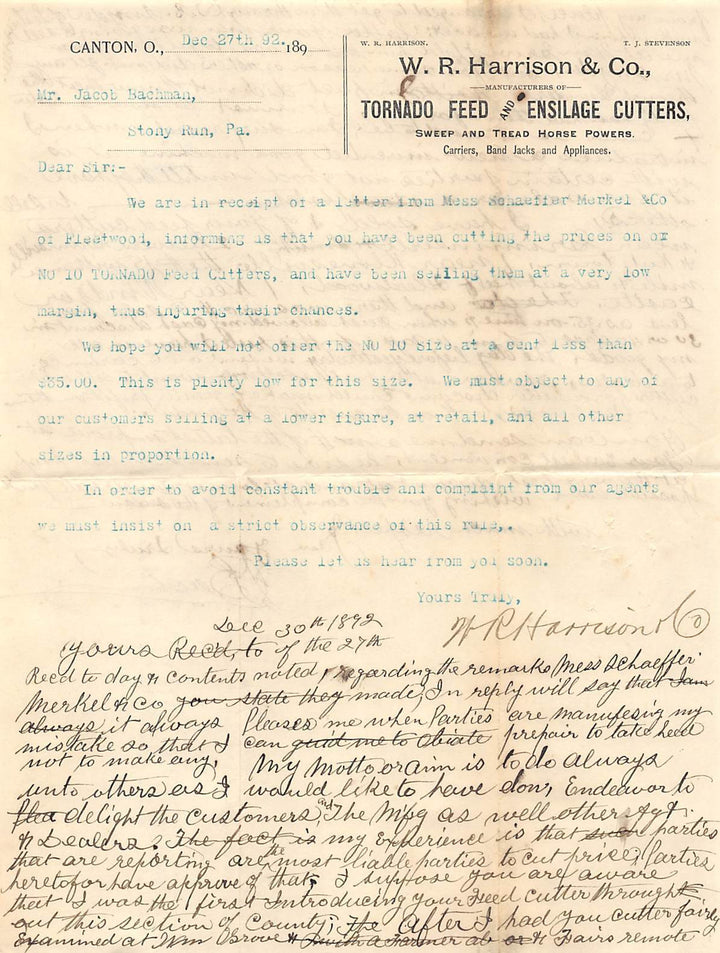 CANTON, O., Dec 27th 92. 189
W. R. HARRISON. T. J. STEVENSON
W. R. Harrison & Co.,
MANUFACTURERS OF
TORNADO FEED AND ENSILAGE CUTTERS,
SWEEP AND TREAD HORSE POWERS.
Carriers, Band Jacks and Appliances.
Mr. Jacob Bachman,
Stony Run, Pa.
Dear Sir:-
We are in receipt of a letter from Mess Schaeffer Merkel &Co
of Fleetwood, informing us that you have been cutting the prices on our
NO 10 TORNADO Feed Cutters, and have been selling them at a very low
margin, thus injuring their chances.
We hope you will not offer the NO 10 Size at a cent less than
$35.00. This is plenty low for this size. We must object to any of
our customers selling at a lower figure, at retail, and all other
sizes in proportion.
In order to avoid constant trouble and complaint from our agents
we must insist on a strict observance of this rule,.
Please let us hear from you soon.
Yours Truly,
W R Harrison & Co
Dec 30th 1892
Yours Recd, to of the 27th
Recd to day & Contents noted, regarding the remarks Mess Schaeffer
Merkel & Co you state they made, In reply will say that I am
always it always pleases me when Parties are manifesing my
mistake so that I can guid me to prepair to take heed
not to make any, My Motto or aim is to do always
unto others as I would like to have don, Endeavor to
plea delight the customers, and The Mfg as well other Agt.
& Dealers. The fact is my Experience is that such parties
that are reporting are the most liable parties to cut price, Parties
heretofor have approve of that, I suppose you are aware
that I was the first Introducing your Feed cutter through
out this section of County; The After I had you cutter fairly
Examined at Wm Grove & with a Farmer & Fairs remote